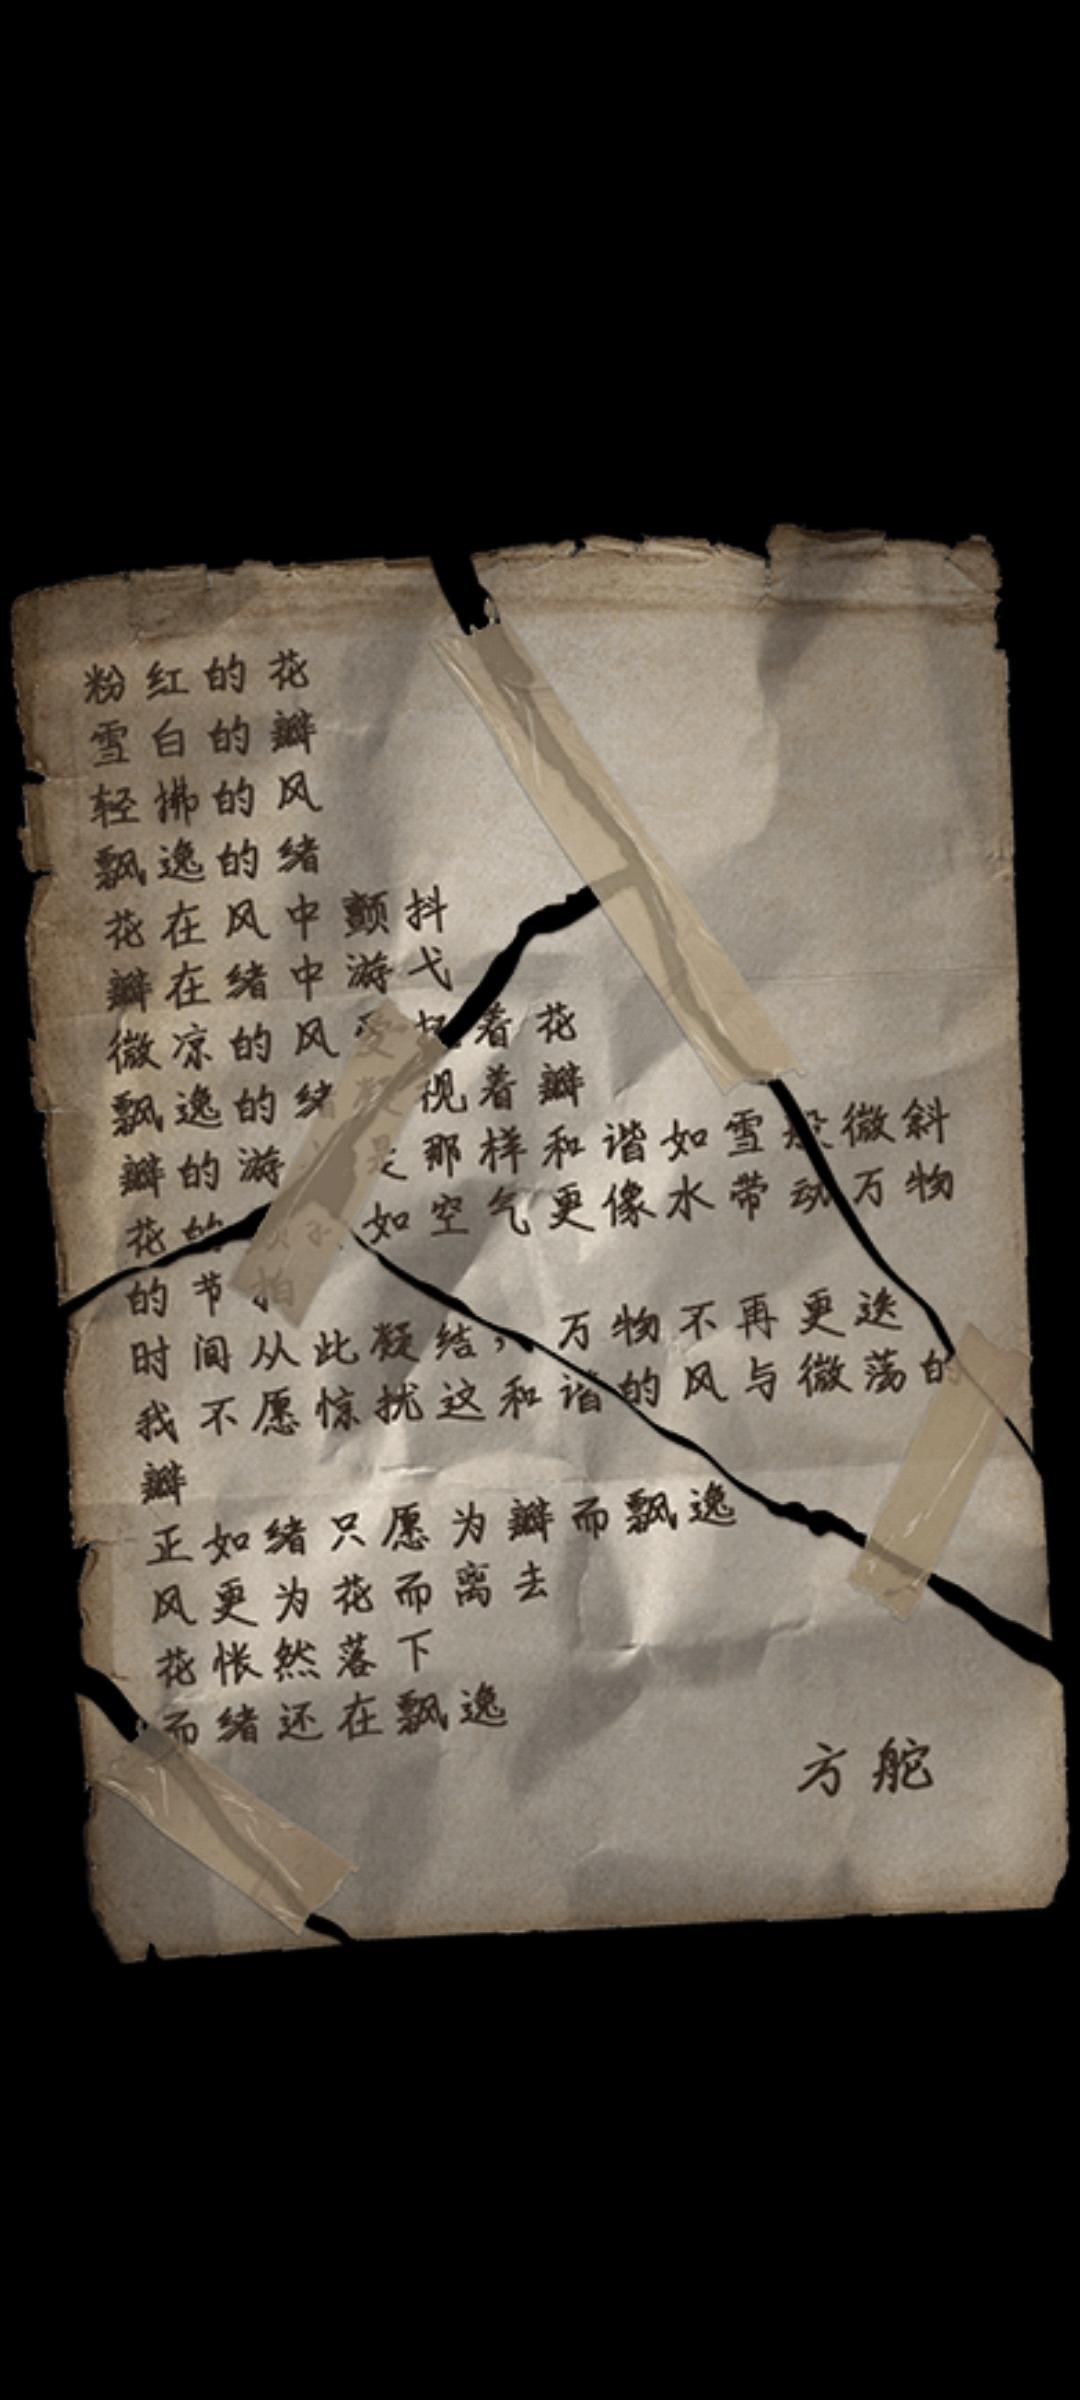 粉红的花
雪白的瓣
轻拂的风
飘逸的绪
花在风中颤抖
瓣在绪中游弋
微凉的风 着花
飘逸的绪凝视着瓣
瓣的游 是那样和谐如雪般微斜
花的 如空气更像水带动万物
的节拍
时间从此凝结，万物不再更迭
我不愿惊扰这和谐的风与微荡的
瓣
正如绪只愿为瓣而飘逸
风更为花而离去
花怅然落下
而绪还在飘逸
方舵